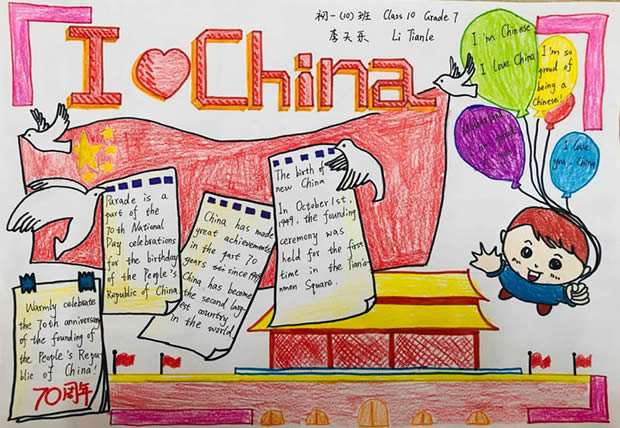 初一(10)班 Class 10 Grade 7
李天乐 Li Tianle
I China
I'm Chinese.
I love China
I'm so
proud of
being a
Chinese!
I love
you, China
Parade is a
part of the
70th National
Day celebrations
for the birthday
of the People's
Republic of China
China has made
great achievements
in the past 70
years since 1949
China has become
the second larg-
est country
in the world
The birth of
new China
In October 1st,
1949, the founding
ceremony was
held for the first
time in the Tiana-
nmen Square.
Warmly celebrate
the 70th anniversary
of the founding of
the People's Repu-
blic of China!
70周年